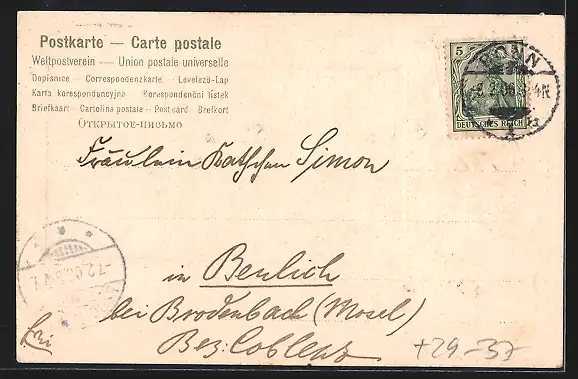 Postkarte — Carte postale
Weltpostverein — Union postale universelle
Dopisnice - Correspondenzkarte - Levelező-Lap
Karta korespondencyjna - Korespondenční lístek
Briefkaart - Cartolina postale - Postcard - Brefkort
Открытое-письмо
5
DEUTSCHES REICH
BONN
Fräulein Kathchen Simon
in Beulich
bei Brodenbach (Mosel)
Bez: Coblenz
+29-37